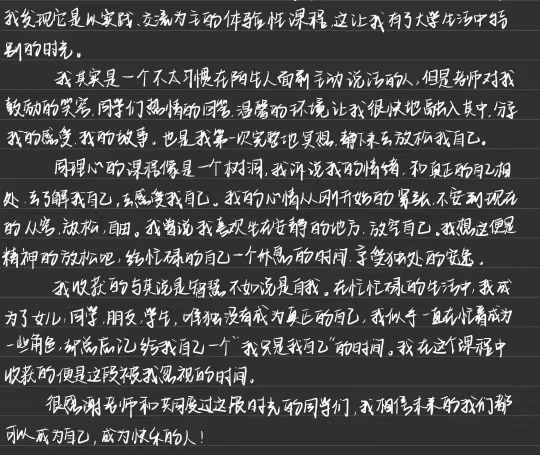 我发现它是以实践、交流为主的体验性课程,这让我有了大学生活中特
别的时光。
我其实是一个不太习惯在陌生人面前主动说话的人,但是老师对我
鼓励的笑容,同学们热情的回答,温馨的环境让我很快地融入其中,分享
我的感受,我的故事。也是我第一次完整地冥想,静下来去放松我自己。
同理心的课程像是一个树洞,我诉说我的情绪,和真正的自己相
处,去了解我自己,去感受我自己。我的心情从刚开始的紧张、不安到现在
的从容,放松,自由。我曾说我喜欢坐在安静的地方,放空自己。我想这便是
精神的放松吧,给忙碌的自己一个休憩的时间,享受独处的安逸。
我收获的与其说是智慧,不如说是自我。在忙忙碌碌的生活中,我成
为了女儿,同学,朋友,学生,唯独没有成为真正的自己,我似乎一直在忙着成为
一些角色,却总忘记给我自己一个“我只是我自己”的时间。我在这个课程中
收获的便是这段被我忽视的时间。
很感谢老师和共同度过这段时光的同学们,我相信未来的我们都
可以成为自己,成为快乐的人!